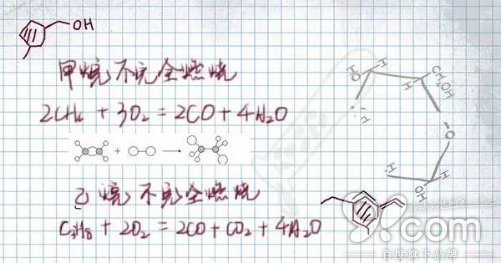 OH
甲烷不完全燃烧
2CH₄ + 3O₂ = 2CO + 4H₂O
+
乙烷不完全燃烧
C₂H₈ + 2O₂ = 2CO + CO₂ + 4H₂O
HO
H
H
CH₂OH
O
H
H
OH
.com